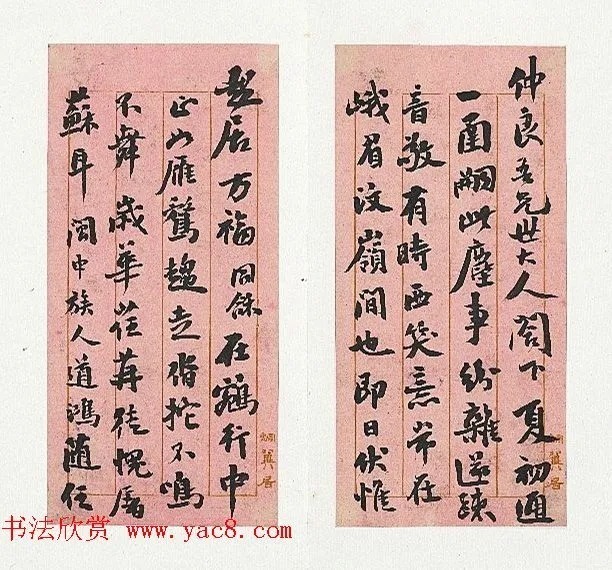 仲良吾兄世大人閣下夏初通
一圅嗣此塵事紛雜遂疎
音敬有時西笑意常在
峨眉汶嶺間也即日伏惟
起居万福同龢在鵷行中
正如雁鶩趨走不鳴
不舞歲華荏苒徒愧屠
蘇耳閩中族人道鴻随任
书法欣赏 www.yac8.com